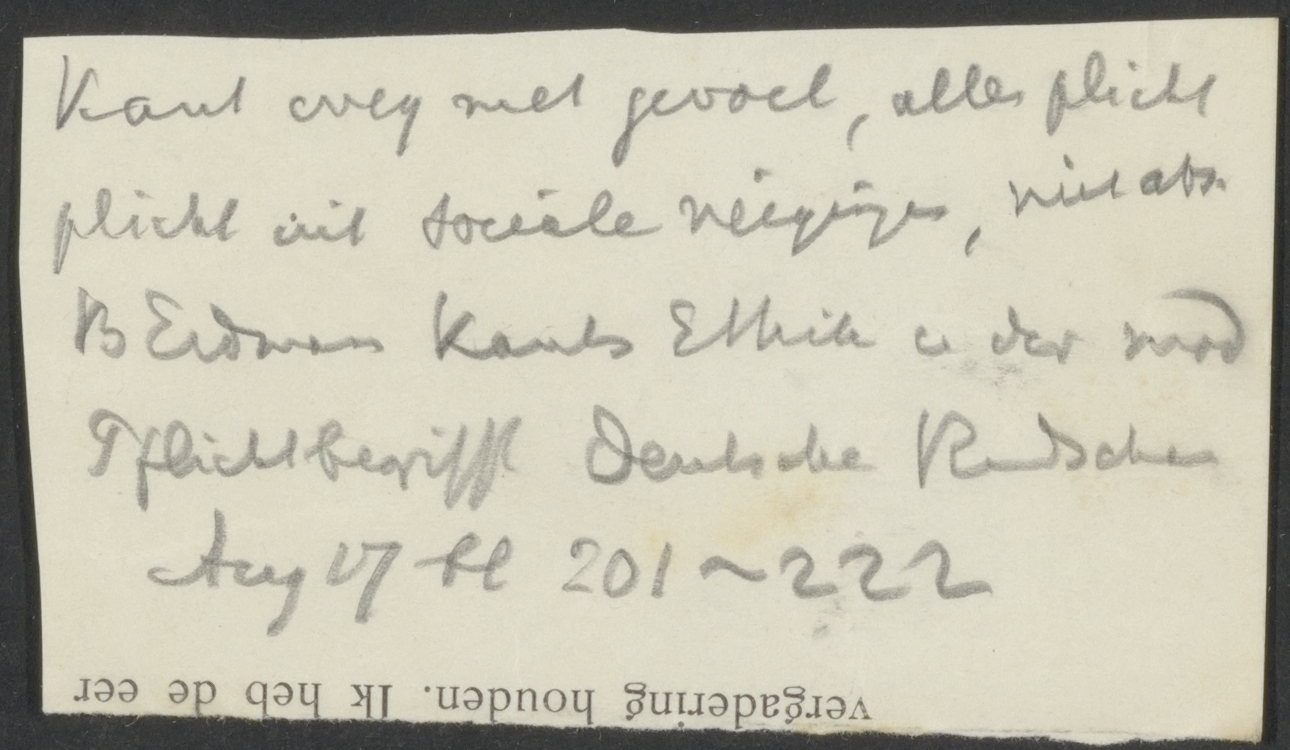 Kant overg met gevoel, alles plicht
plicht uit sociale neigingen, niet abs.
B Erdmann Kants Ethik u der mod
Pflichtbegriff Deutsche Rundschau
Aug 17 bl 201~222
vergadering houden. Ik heb de eer